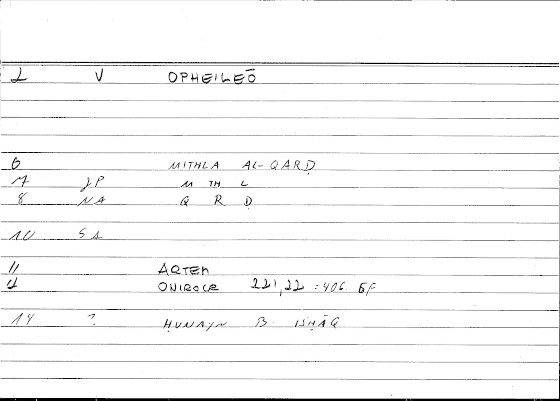 2 V OPHEILEŌ
6 MITHLA AL-QARḌ
7 JP M TH L
8 NA Q R Ḍ
10 SA
11 ARTEM
12 ONIROCR 221,22 : 406 BF
14 ? ḤUNAYN B ISḤĀQ